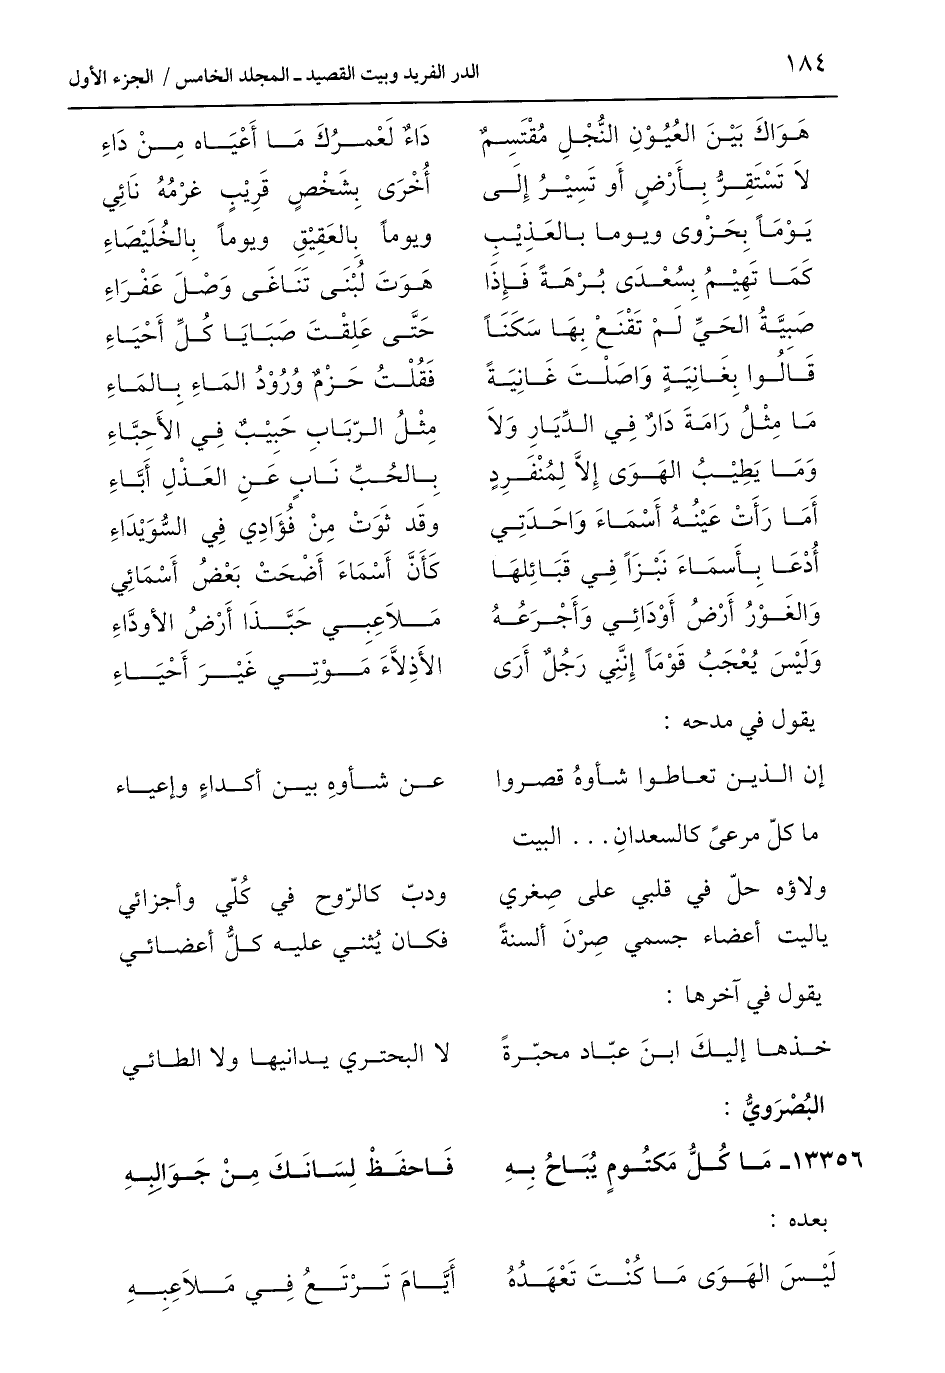 ١٨٤
الدر الفريد وبيت القصيد ـ المجلد الخامس / الجزء الأول
هَوَاكَ بَيْنَ العُيُوْنِ النُّجْلِ مُقْتَسِمٌ دَاءٌ لَعَمْرُكَ مَا أَعْيَاه مِنْ دَاءِ
لاَ تَسْتَقِرُّ بِأَرْضٍ أَو تَسِيْرُ إِلَى أُخْرَى بِشَخْصٍ قَرِيْبٍ عَزْمُهُ نَائِي
يَوْمَاً بِحَزْوَى ويوما بِالعَذِيْبِ ويوماً بِالعَقِيْقِ ويوماً بِالخُلَيْصَاءِ
كَمَا تَهِيْمُ بِسُعْدَى بُرْهَةً فَإِذَا هَوَتْ لُبْنَى تَنَاغَى وَصْلَ عَفْرَاءِ
صَبِيَّةُ الحَيِّ لَمْ تَقْنَعْ بِهَا سَكَنَاً حَتَّى عَلِقْتَ صَبَايَا كُلِّ أَحْيَاءِ
قَالُوا بِغَانِيَةٍ وَاصَلْتَ غَانِيَةً فَقُلْتُ حَزْمٌ وُرُوْدُ المَاءِ بِالمَاءِ
مَا مِثْلُ رَامَةَ دَارٌ فِي الدِّيَارِ وَلاَ مِثْلُ الرَّبَابِ حَبِيْبٌ فِي الأَحِبَّاءِ
وَمَا يَطِيْبُ الهَوَى إِلاَّ لِمُنْفَرِدٍ بِالحُبِّ نَابٍ عَنِ العَذْلِ أَبَّاءِ
أَمَا رَأَتْ عَيْنُهُ أَسْمَاءَ وَاحَدَتِي وقد ثَوَتْ مِنْ فُؤَادِي فِي السُّوَيْدَاءِ
أُدْعَا بِأَسمَاءَ نَبْزَاً فِي قَبَائِلهَا كَأَنَّ أَسْمَاءَ أَضْحَتْ بَعْضُ أَسْمَائِي
وَالغَوْرُ أَرْضُ أَوْدَائِي وَأَجْرَعُهُ مَلاَعِبِي حَبَّذَا أَرْضُ الأَودَّاءِ
وَلَيْسَ يُعْجَبُ قَوْمَاً إِنَّنِي رَجُلٌ أَرَى الأَذِلاَّءَ مَوْتِي غَيْرَ أَحْيَاءِ
يقول في مدحه :
إن الذين تعاطوا شَأوهُ قصروا عن شأوه بين أكداءٍ وإعياء
ما كلّ مرعىً كالسعدانِ . . . البيت
ولاؤه حلّ في قلبي على صِغري ودبّ كالرّوح في كُلّي وأجزائي
ياليت أعضاء جسمي صِرْنَ ألسنةً فكان يُثني عليه كلُّ أعضائي
يقول في آخرها :
خذها إليكَ ابنَ عبّاد محبّرةً لا البحتري يدانيها ولا الطائي
البُصْرَوِيُّ :
١٣٣٥٦ـ مَا كُلُّ مَكتُومٍ يُبَاحُ بِهِ فَاحفَظْ لِسَانَكَ مِنْ جَوَالِبِهِ
بعده :
لَيْسَ الهَوَى مَا كُنْتَ تَعْهَدُهُ أَيَّامَ تَرْتَعُ فِي مَلاَعِبِهِ